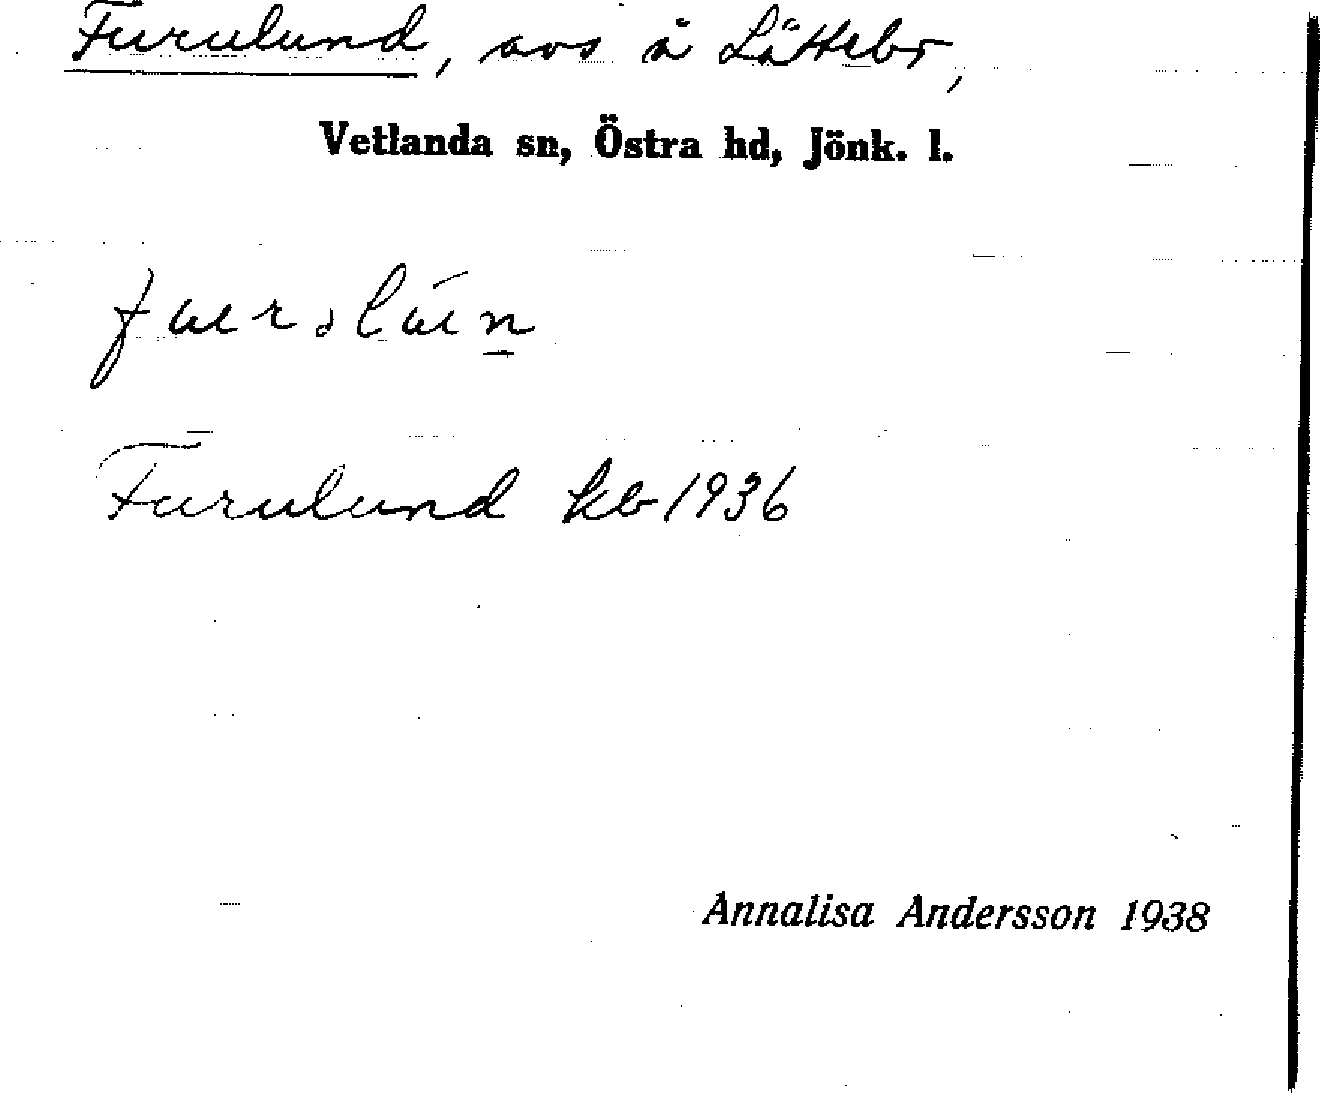 Furulund, avs å Låttebr,
Vetlanda sn, Östra hd, Jönk. l.
Furulund kb 1936
Annalisa Andersson 1938